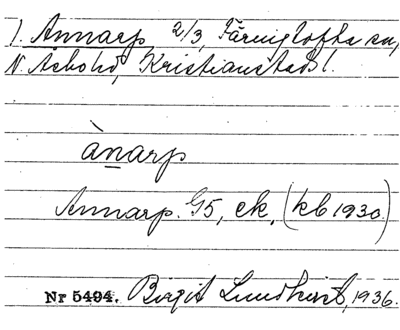 1. Annarp, 2/3, Färingtofta sn,
N. Åsbohd, Kristianstads l.
ànarp
Annarp. G5, ek, (kb 1930)
Nr 5494. Birgit Lundkvist, 1936.